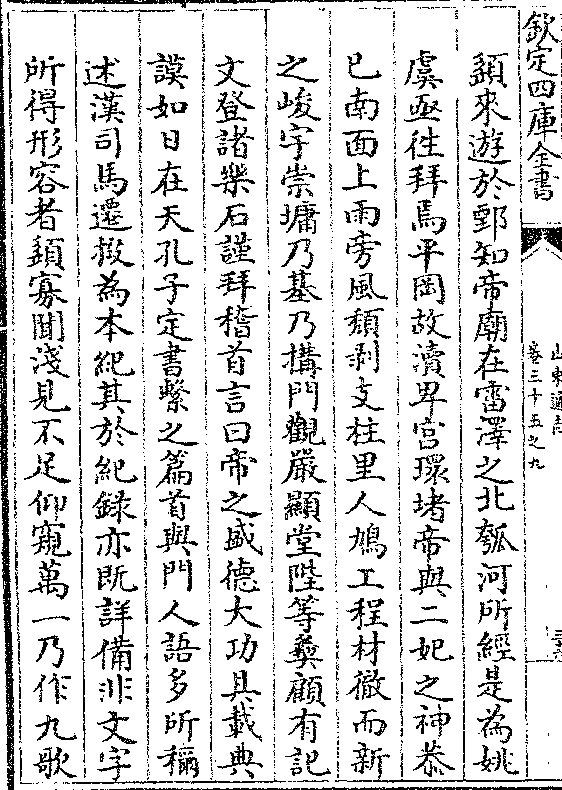 欽定四庫全書
山東通志
卷三十五之九
頴來遊於鄄知帝廟在雷澤之北瓠河所經是為姚
虞亟徃拜焉平岡故瀆卑宮環堵帝與二妃之神恭
已南面上雨旁風頽剥支柱里人鳩工程材徹而新
之峻宇崇墉乃基乃構門觀嚴顯堂陛等彝顧有記
文登諸樂石謹拜稽首言曰帝之盛德大功具載典
謨如日在天孔子定書繫之篇首與門人語多所稱
述漢司馬遷掇為本紀其於紀録亦既詳備非文字
所得形容者頴寡聞淺見不足仰窺萬一乃作九歌